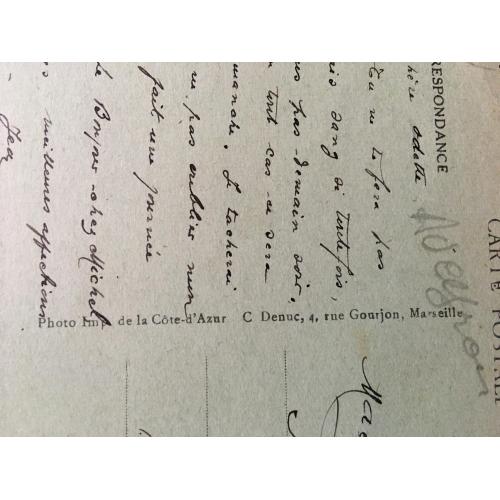 CARTE POSTALE
RESPONDANCE
Aveyron
hère Odette,
tu ne te fera pas
ang si toutefois,
us pas demain soir,
n tout cas ce sera
manche. Je tacherai
ne pas oublier mon
fait une journée
le Bonjour chez Michel
s meilleures affections
Jean
Photo Imp de la Côte-d'Azur C Denuc, 4, rue Gourjon, Marseille
Mad